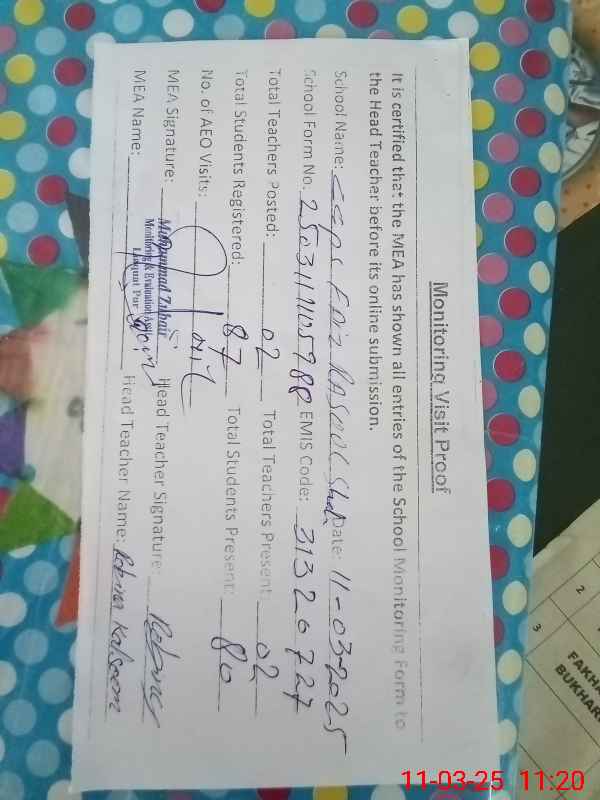 Monitoring Visit Proof
It is certified that the MEA has shown all entries of the School Monitoring Form to
the Head Teacher before its online submission.
School Name: GGPS Faiz Rasool Shah Date: 11-03-2025
School Form No. EMIS Code: 31320727
Total Teachers Posted: 02 Total Teachers Present: 02
Total Students Registered: 87 Total Students Present: 80
No. of AEO Visits:
MEA Signature: Head Teacher Signature: Robina
MEA Name: Head Teacher Name: Robina Kalsoom
Muhammad Zubair
Monitoring & Evaluation Assistant
Liaquat Pur
2
3
FAKHA
BUKHARI
11-03-25 11:20